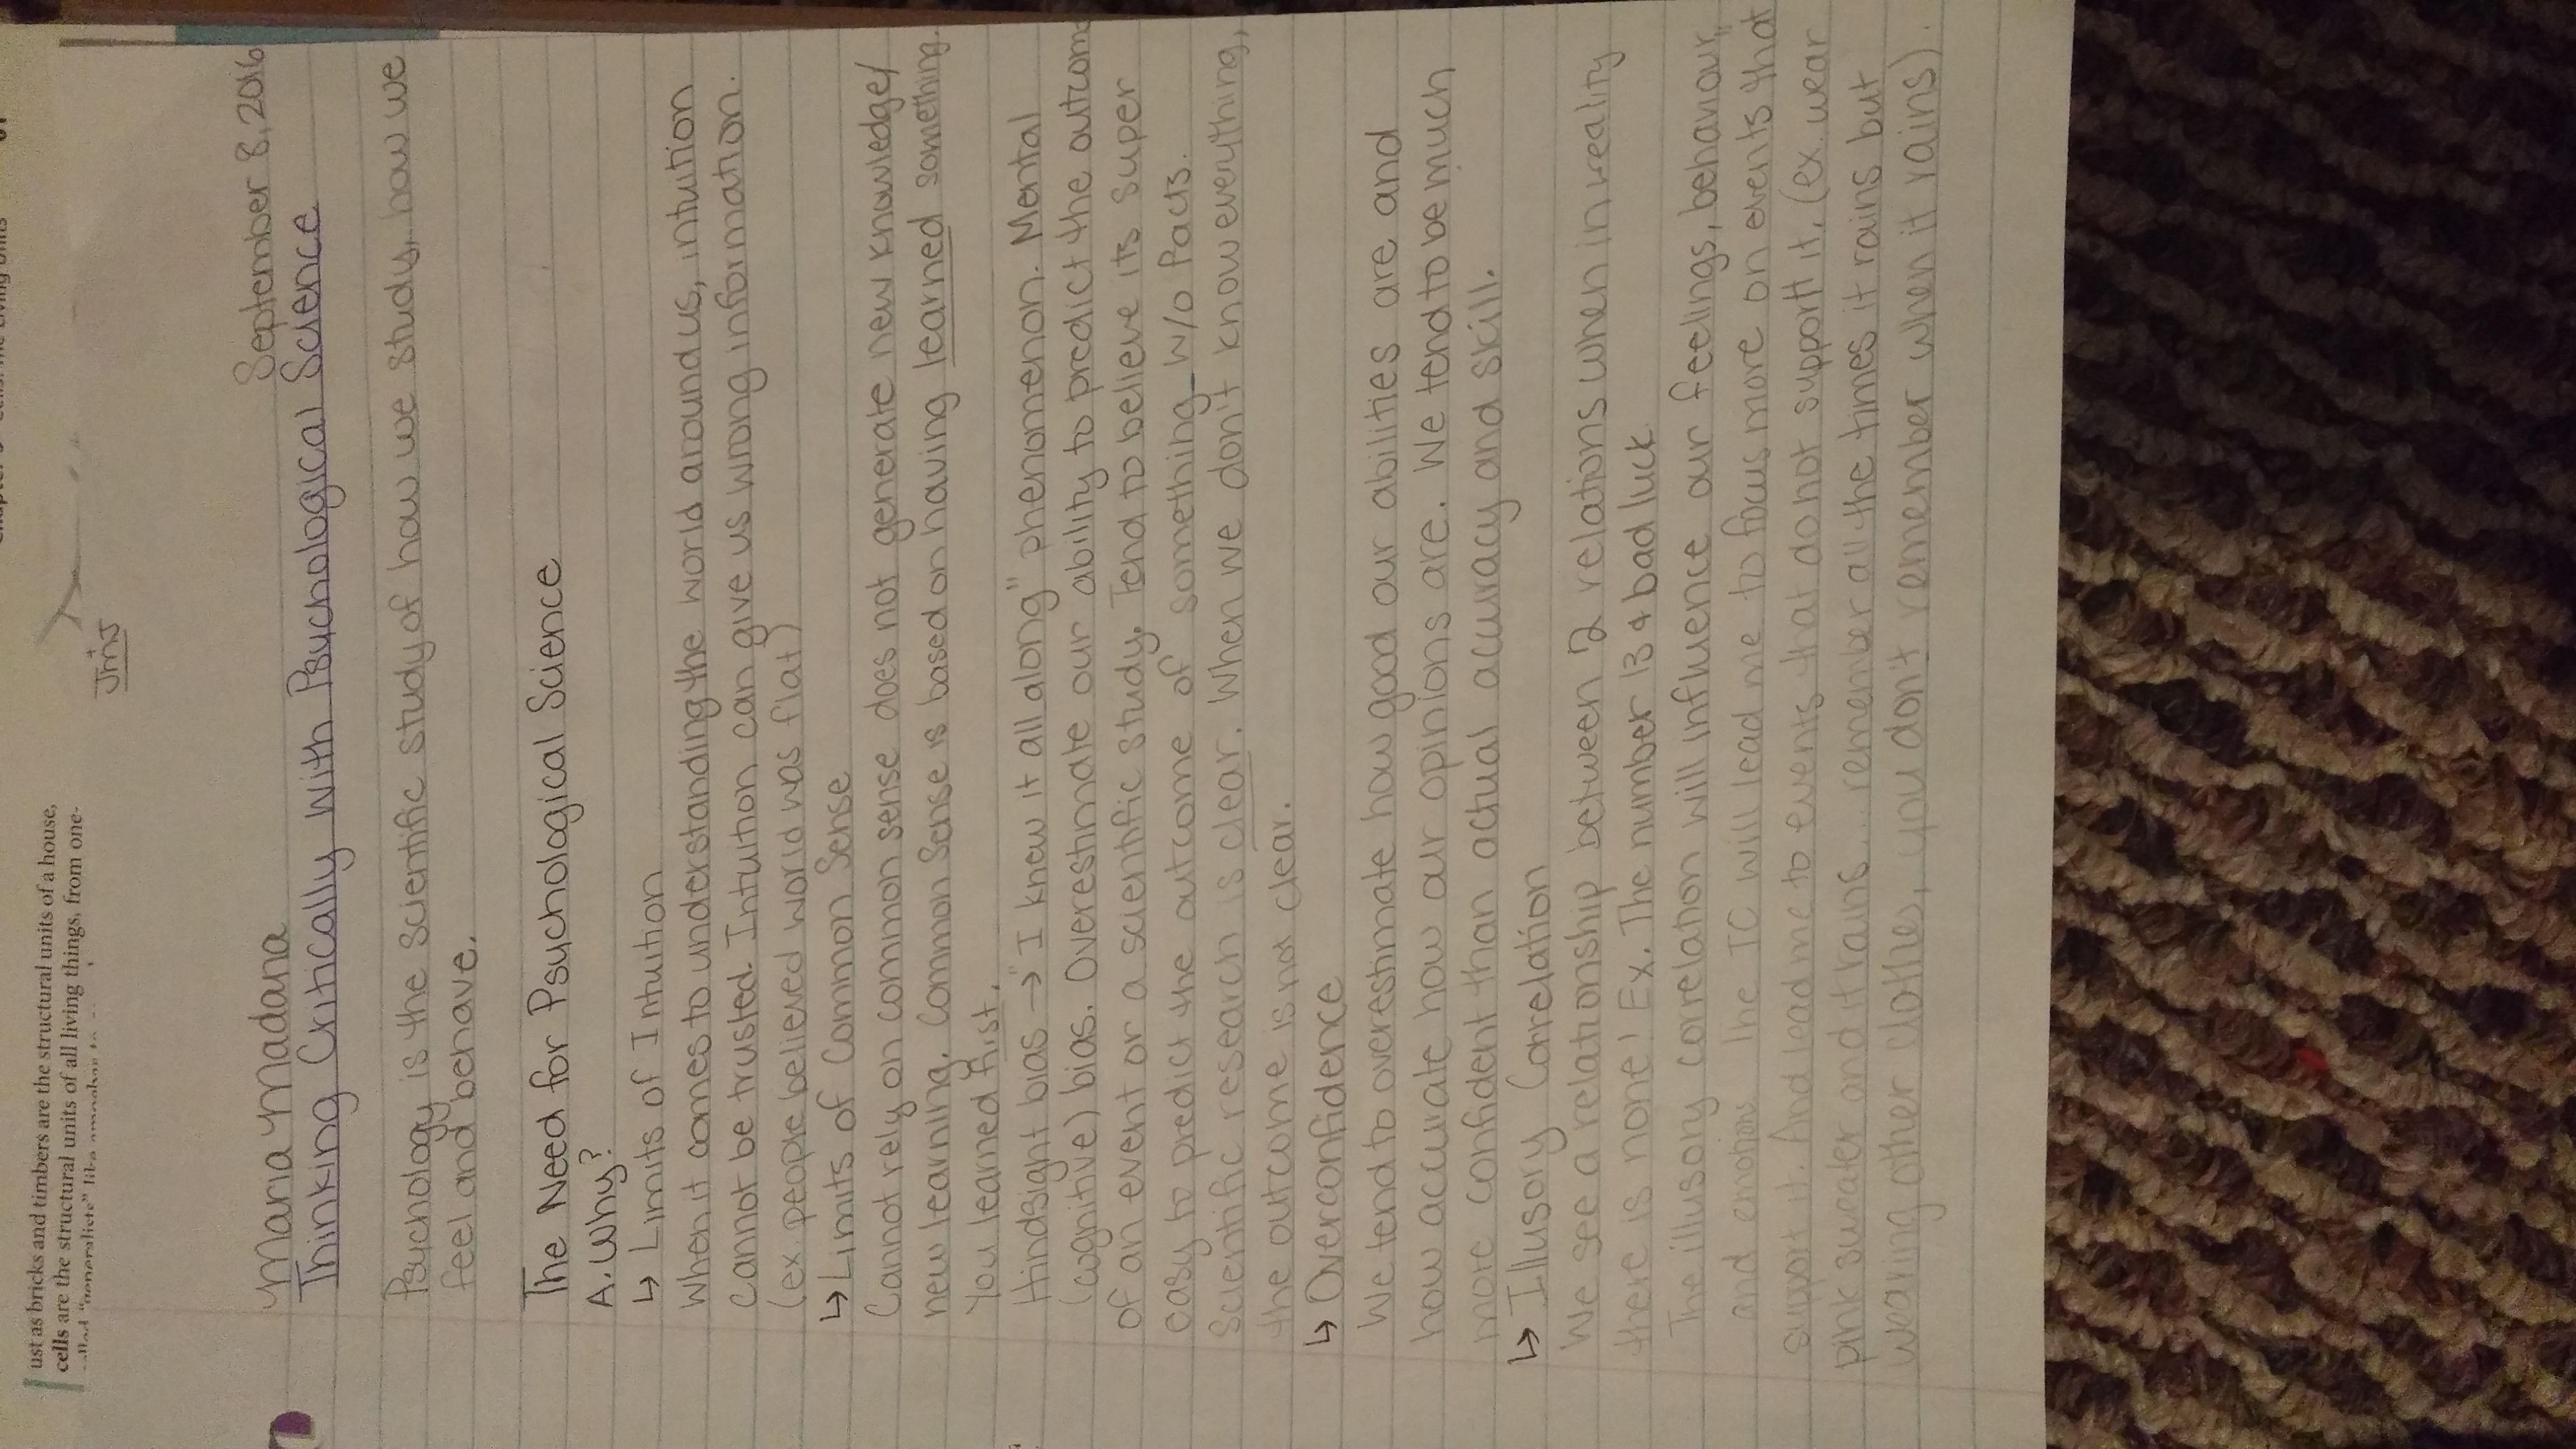 ust as bricks and timbers are the structural units of a house,
cells are the structural units of all living things, from one-
Maria Madana
September 8, 2016
Thinking Critically with Psychological Science
Psychology is the scientific study of how we study, how we
feel and behave.
The Need for Psychological Science
A. Why?
↳ Limits of Intuition
When it comes to understanding the world around us, intuition
cannot be trusted. Intuition can give us wrong information.
(ex people believed world was flat)
↳ Limits of Common Sense
Cannot rely on common sense does not generate new knowledge/
new learning. Common Sense is based on having learned something.
You learned first.
Hindsight bias → "I knew it all along" phenomenon. Mental
(cognitive) bias. Overestimate our ability to predict the outcome
of an event or a scientific study. Tend to believe its super
easy to predict the outcome of something w/o Facts.
Scientific research is clear. When we don't know everything,
the outcome is not clear.
↳ Overconfidence
We tend to overestimate how good our abilities are and
how accurate how our opinions are. We tend to be much
more confident than actual accuracy and skill.
↳ Illusory Correlation
We see a relationship between 2 relations when in reality
there is none! Ex. The number 13 & bad luck
The illusory correlation will influence our feelings, behaviour,
and emotions The IC will lead me to focus more on events that
support it. And lead me to events that do not support it. (ex. wear
pink sweater and it rains... remember all the times it rains but
wearing other clothes, you don't remember when it rains).